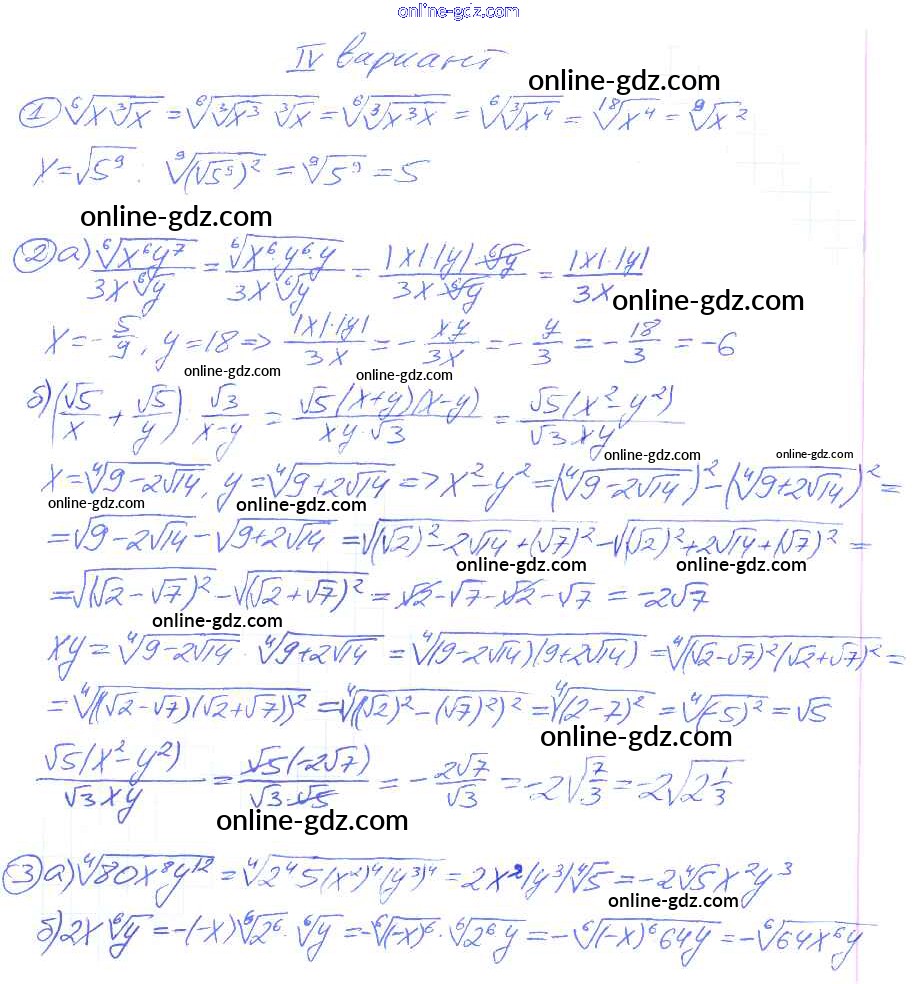 online-gdz.com
IV вариант
online-gdz.com
① ⁶√(x∛x) = ⁶√(∛x³ ∛x) = ⁶√(∛(x³x)) = ⁶√(∛x⁴) = ¹⁸√x⁴ = ⁹√x²
x = √5⁹ : ⁹√((√5⁹)²) = ⁹√5⁹ = 5
online-gdz.com
② а) ⁶√(x⁶y⁷)/(3x ⁶√y) = ⁶√(x⁶·y⁶·y)/(3x ⁶√y) = |x|·|y|·⁶√y/(3x·⁶√y) = |x|·|y|/3x
online-gdz.com
x = -5/9, y = 18 => |x|·|y|/3x = -xy/3x = -y/3 = -18/3 = -6
online-gdz.com online-gdz.com
б) (√5/x + √5/y) : √3/(x-y) = √5(x+y)(x-y)/(xy·√3) = √5(x²-y²)/(√3·xy)
online-gdz.com online-gdz.com
x = ⁴√(9-2√14), y = ⁴√(9+2√14) => x²-y² = (⁴√(9-2√14))² - (⁴√(9+2√14))² =
online-gdz.com online-gdz.com
= √(9-2√14) - √(9+2√14) = √((√2)²-2√14+(√7)²) - √((√2)²+2√14+(√7)²) =
online-gdz.com online-gdz.com
= √((√2-√7)²) - √((√2+√7)²) = √2-√7-√2-√7 = -2√7
online-gdz.com
xy = ⁴√(9-2√14) · ⁴√(9+2√14) = ⁴√((9-2√14)(9+2√14)) = ⁴√((√2-√7)²(√2+√7)²) =
= ⁴√(((√2-√7)(√2+√7))²) = ⁴√(((√2)²-(√7)²)²) = ⁴√((2-7)²) = ⁴√((-5)²) = √5
online-gdz.com
√5(x²-y²)/(√3xy) = √5(-2√7)/(√3·√5) = -2√7/√3 = -2√(7/3) = -2√(2 1/3)
online-gdz.com
③ а) ⁴√(80x⁸y¹²) = ⁴√(2⁴5(x²)⁴(y³)⁴) = 2x²|y³|⁴√5 = -2⁴√5x²y³
online-gdz.com
б) 2x ⁶√y = -(-x) ⁶√2⁶ · ⁶√y = -⁶√(-x)⁶ · ⁶√(2⁶y) = -⁶√((-x)⁶64y) = -⁶√(64x⁶y)
online-gdz.com